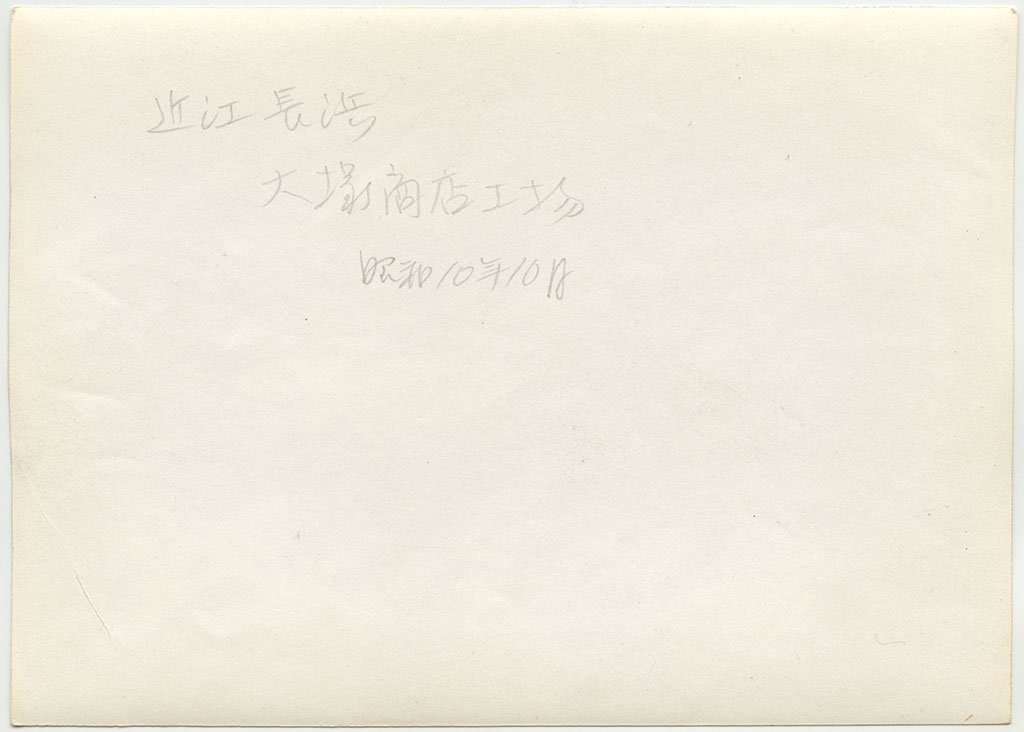 近江長浜
大塚商店工場
昭和10年10月